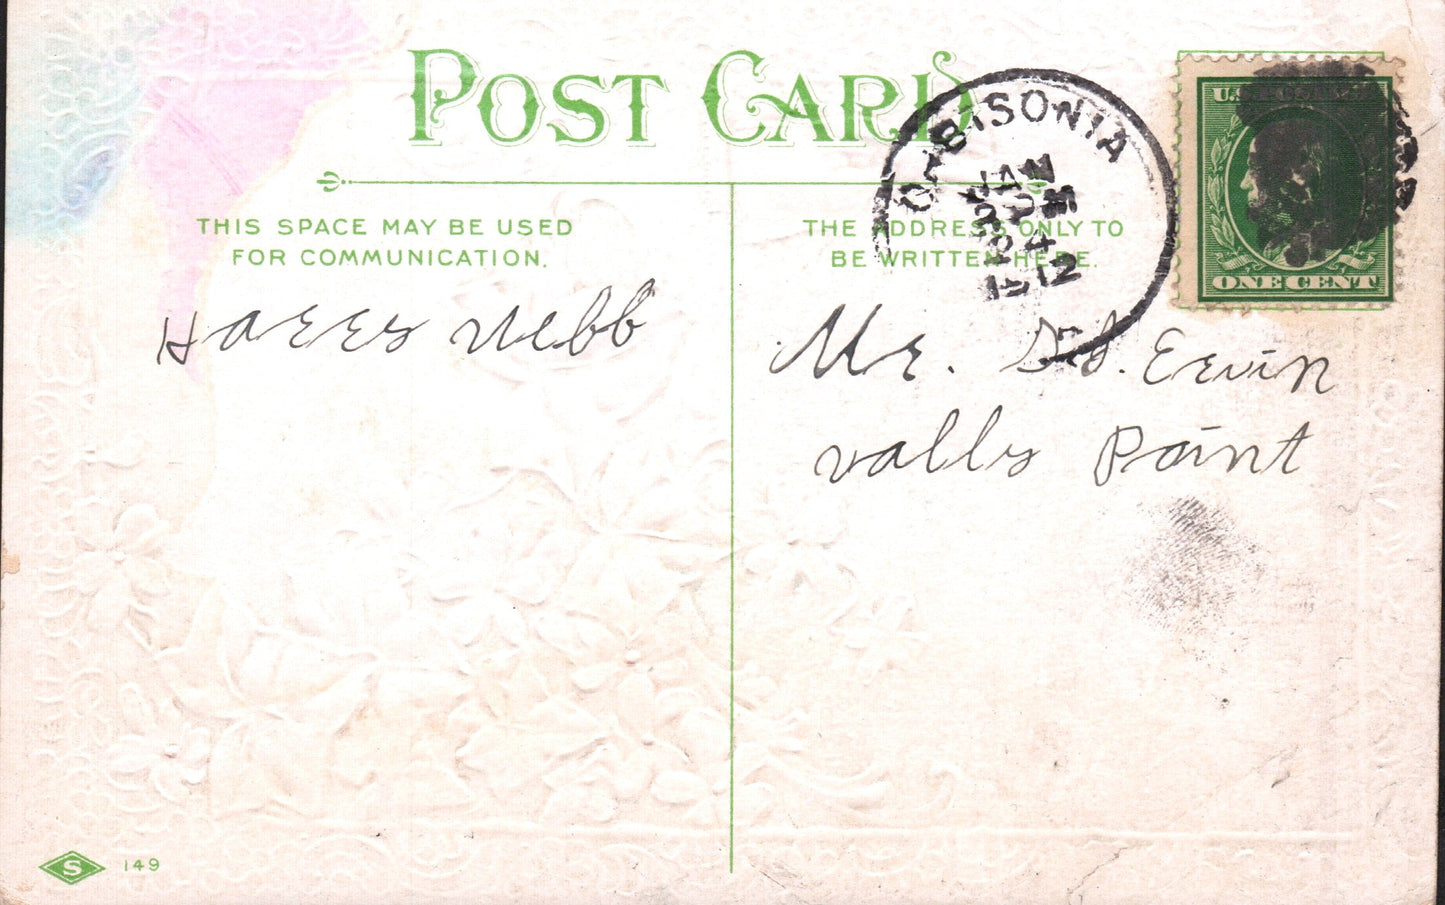 POST CARD
THIS SPACE MAY BE USED
FOR COMMUNICATION.
THE ADDRESS ONLY TO
BE WRITTEN HERE.
ORBISONIA
JAN
ONE CENT
Harry Webb
Mr. Ervin
vally Point
S 149